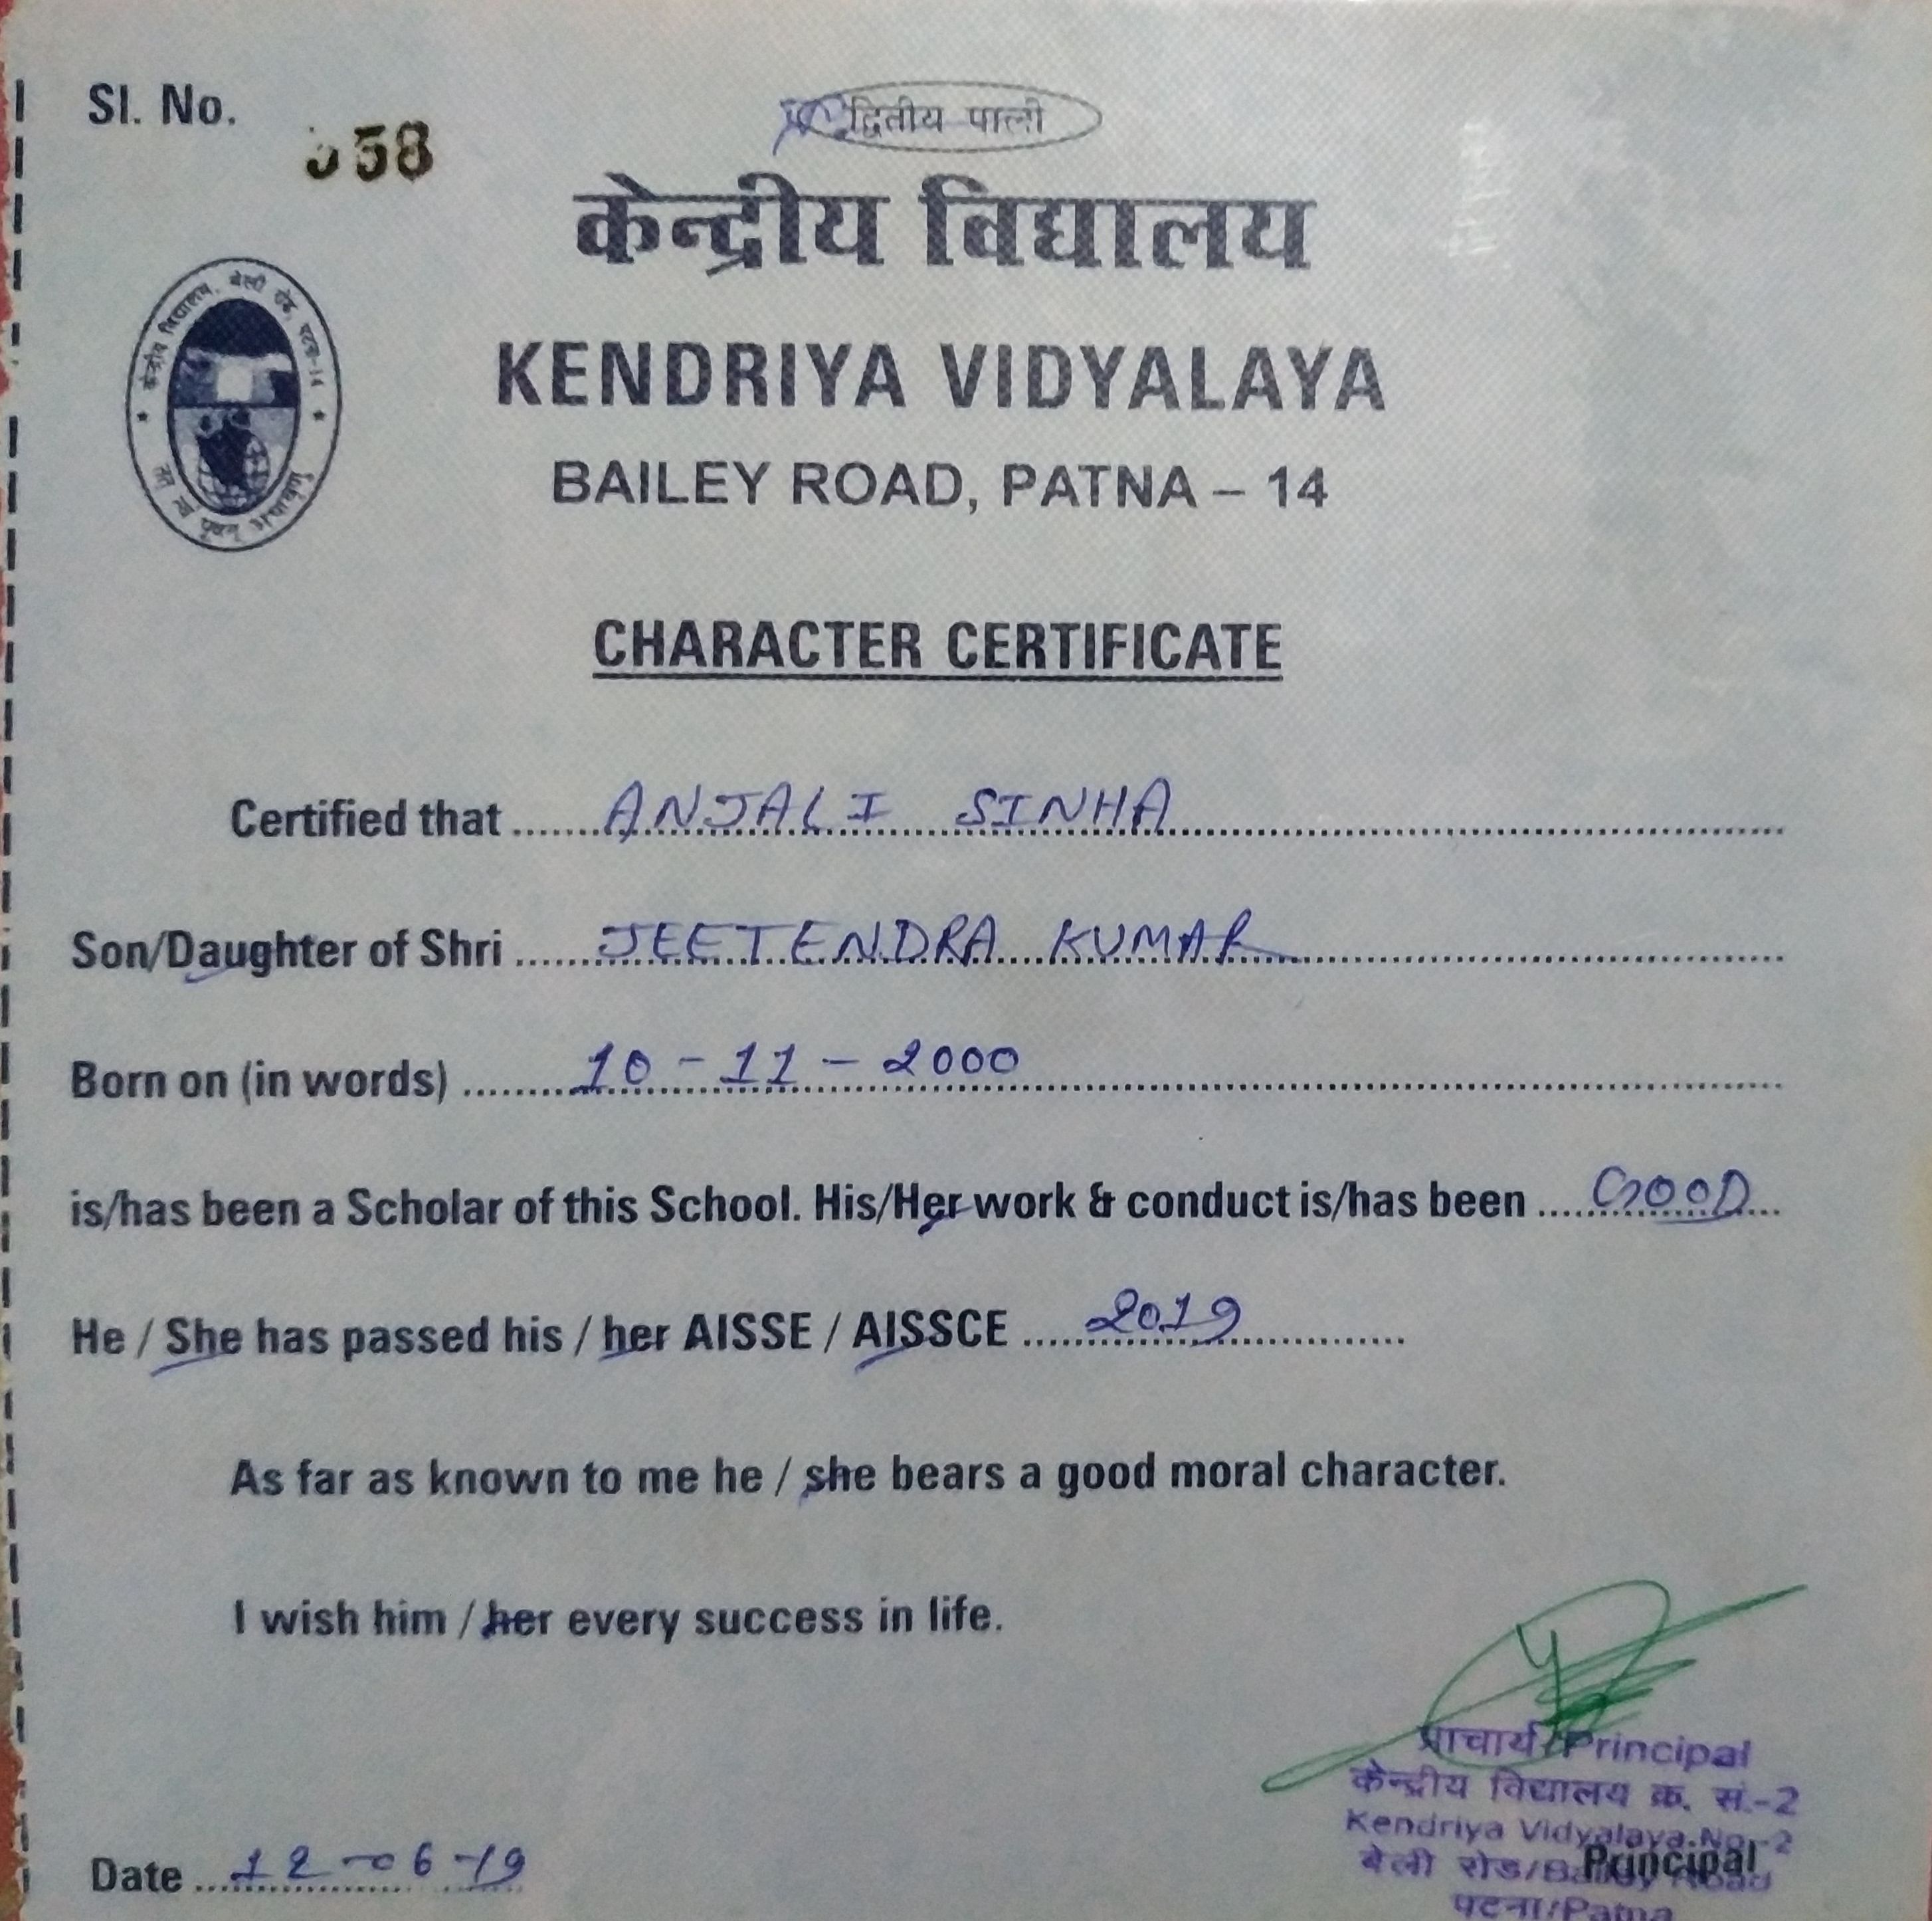 Sl. No.
58
द्वितीय पाली
केन्द्रीय विद्यालय
केन्द्रीय विद्यालय, बेली रोड, पटना-14
तत् त्वं पूषन् अपावृणु
KENDRIYA VIDYALAYA
BAILEY ROAD, PATNA – 14
CHARACTER CERTIFICATE
Certified that ANJALI SINHA
Son/Daughter of Shri JEETENDRA KUMAR
Born on (in words) 10 - 11 - 2000
is/has been a Scholar of this School. His/Her work & conduct is/has been GOOD
He / She has passed his / her AISSE / AISSCE 2019
As far as known to me he / she bears a good moral character.
I wish him / her every success in life.
प्राचार्य/Principal
केन्द्रीय विद्यालय क्र. सं.-2
Kendriya Vidyalaya No.-2
Principal
बेली रोड/Bailey Road
पटना/Patna
Date 12-06-19